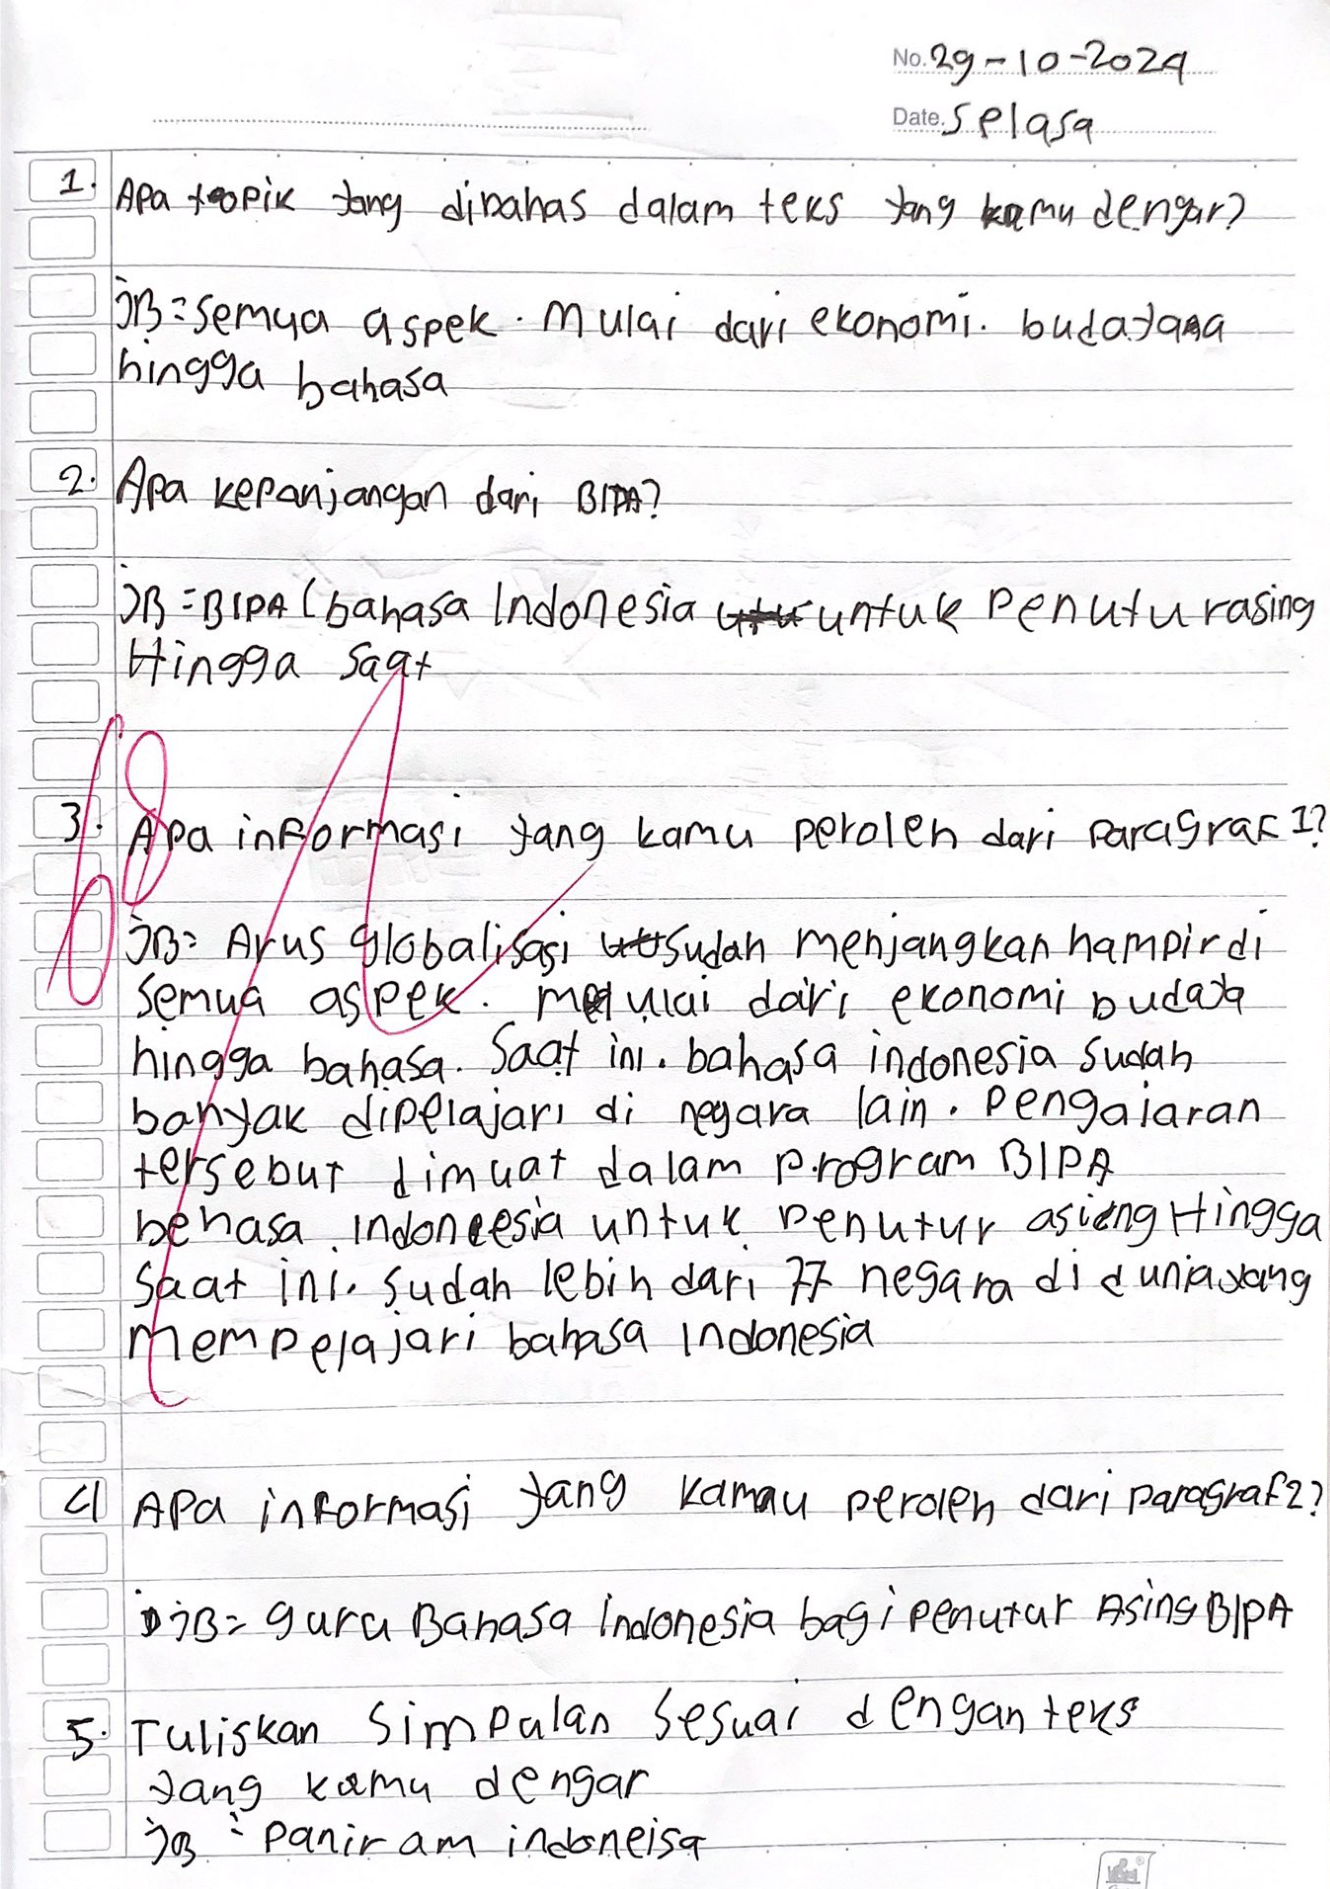 No. 29-10-2024
Date. Selasa
1. Apa toopik yang dibahas dalam teks yang kamu dengar?
JB = semua aspek. Mulai dari ekonomi. budayana
hingga bahasa
2. Apa kepanjangan dari BIPA?
JB = BIPA (bahasa Indonesia untuk Penutu rasing
Hingga Saat
68
3. Apa informasi yang kamu peroleh dari Paragraf 1?
JB = Arus globalisasi sudah menjangkan hampir di
semua aspek. mulai dari ekonomi budaya
hingga bahasa. Saat ini. bahasa indonesia sudah
banyak dipelajari di negara lain. Pengajaran
tersebut dimuat dalam Program BIPA
behasa indoneesia untuk Penutur asieng Hingga
Saat ini. sudah lebih dari 77 negara di dunia yang
Mempelajari bahasa Indonesia
4 Apa informasi yang kamu peroleh dari paragraf 2?
JB = guru Bahasa Indonesia bagi penutur Asing BIPA
5. Tuliskan Simpulan Sesuai dengan teks
yang kamu dengar
JB = Paniram indoneisa